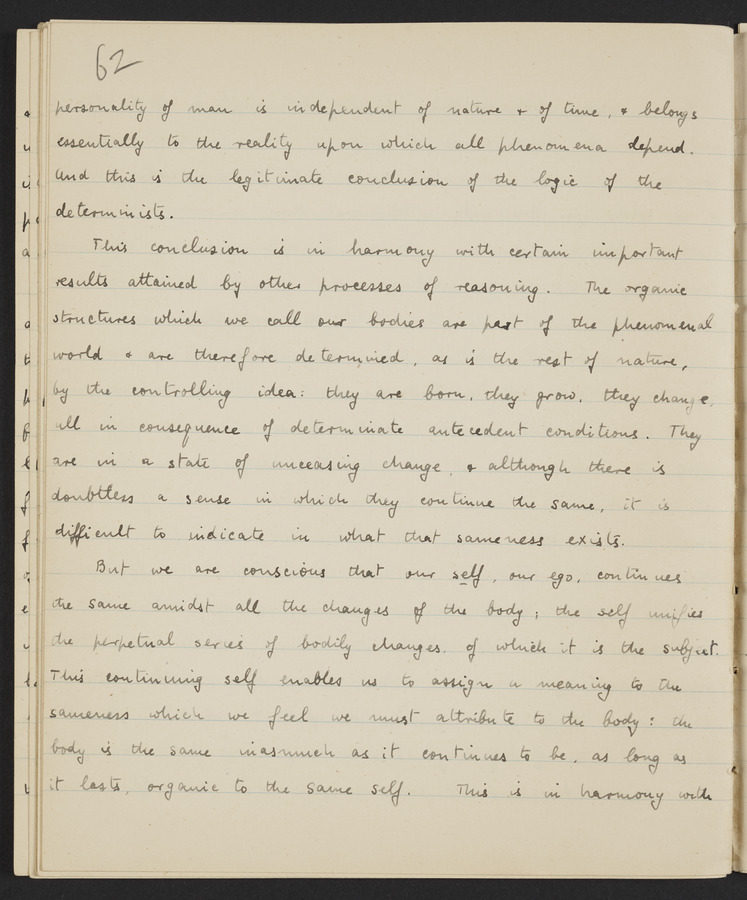 62
personality of man is independent of nature & of time, & belongs
essentially to the reality upon which all phenomena depend.
And this is the legitimate conclusion of the logic of the
determinists.
This conclusion is in harmony with certain important
results attained by other processes of reasoning. The organic
structures which we call our bodies are part of the phenomenal
world & are therefore determined, as is the rest of nature,
by the controlling idea: they are born, they grow, they change,
all in consequence of determinate antecedent conditions. They
are in a state of unceasing change, & although there is
doubtless a sense in which they continue the same, it is
difficult to indicate in what that sameness exists.
But we are conscious that our self, our ego, continues
the same amidst all the changes of the body; the self unifies
the perpetual series of bodily changes, of which it is the subject.
This continuing self enables us to assign a meaning to the
sameness which we feel we must attribute to the body: the
body is the same inasmuch as it continues to be, as long as
it lasts, organic to the same self. This is in harmony with